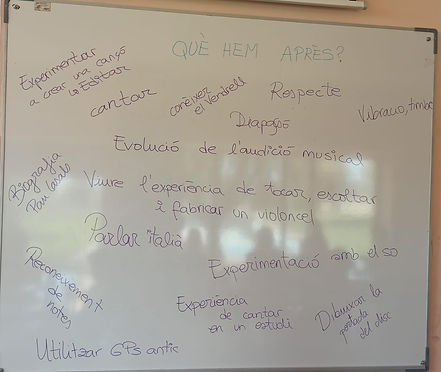 QUÈ HEM APRÈS?
Experimentar
a crear una cançó
Editar
cantar
conèixer
el Vendrell
Respecte
Diapasó
Vibració, timbre
Evolució de l'audició musical
Biografia
Pau Casals
Viure l'experiència de tocar, escoltar
i fabricar un violoncel
Parlar italià
Experimentació amb el so
Reconeixement
de
notes
Experiència
de cantar
en un estudi
Dibuixar la
portada
del disc
Utilitzar GPs antic